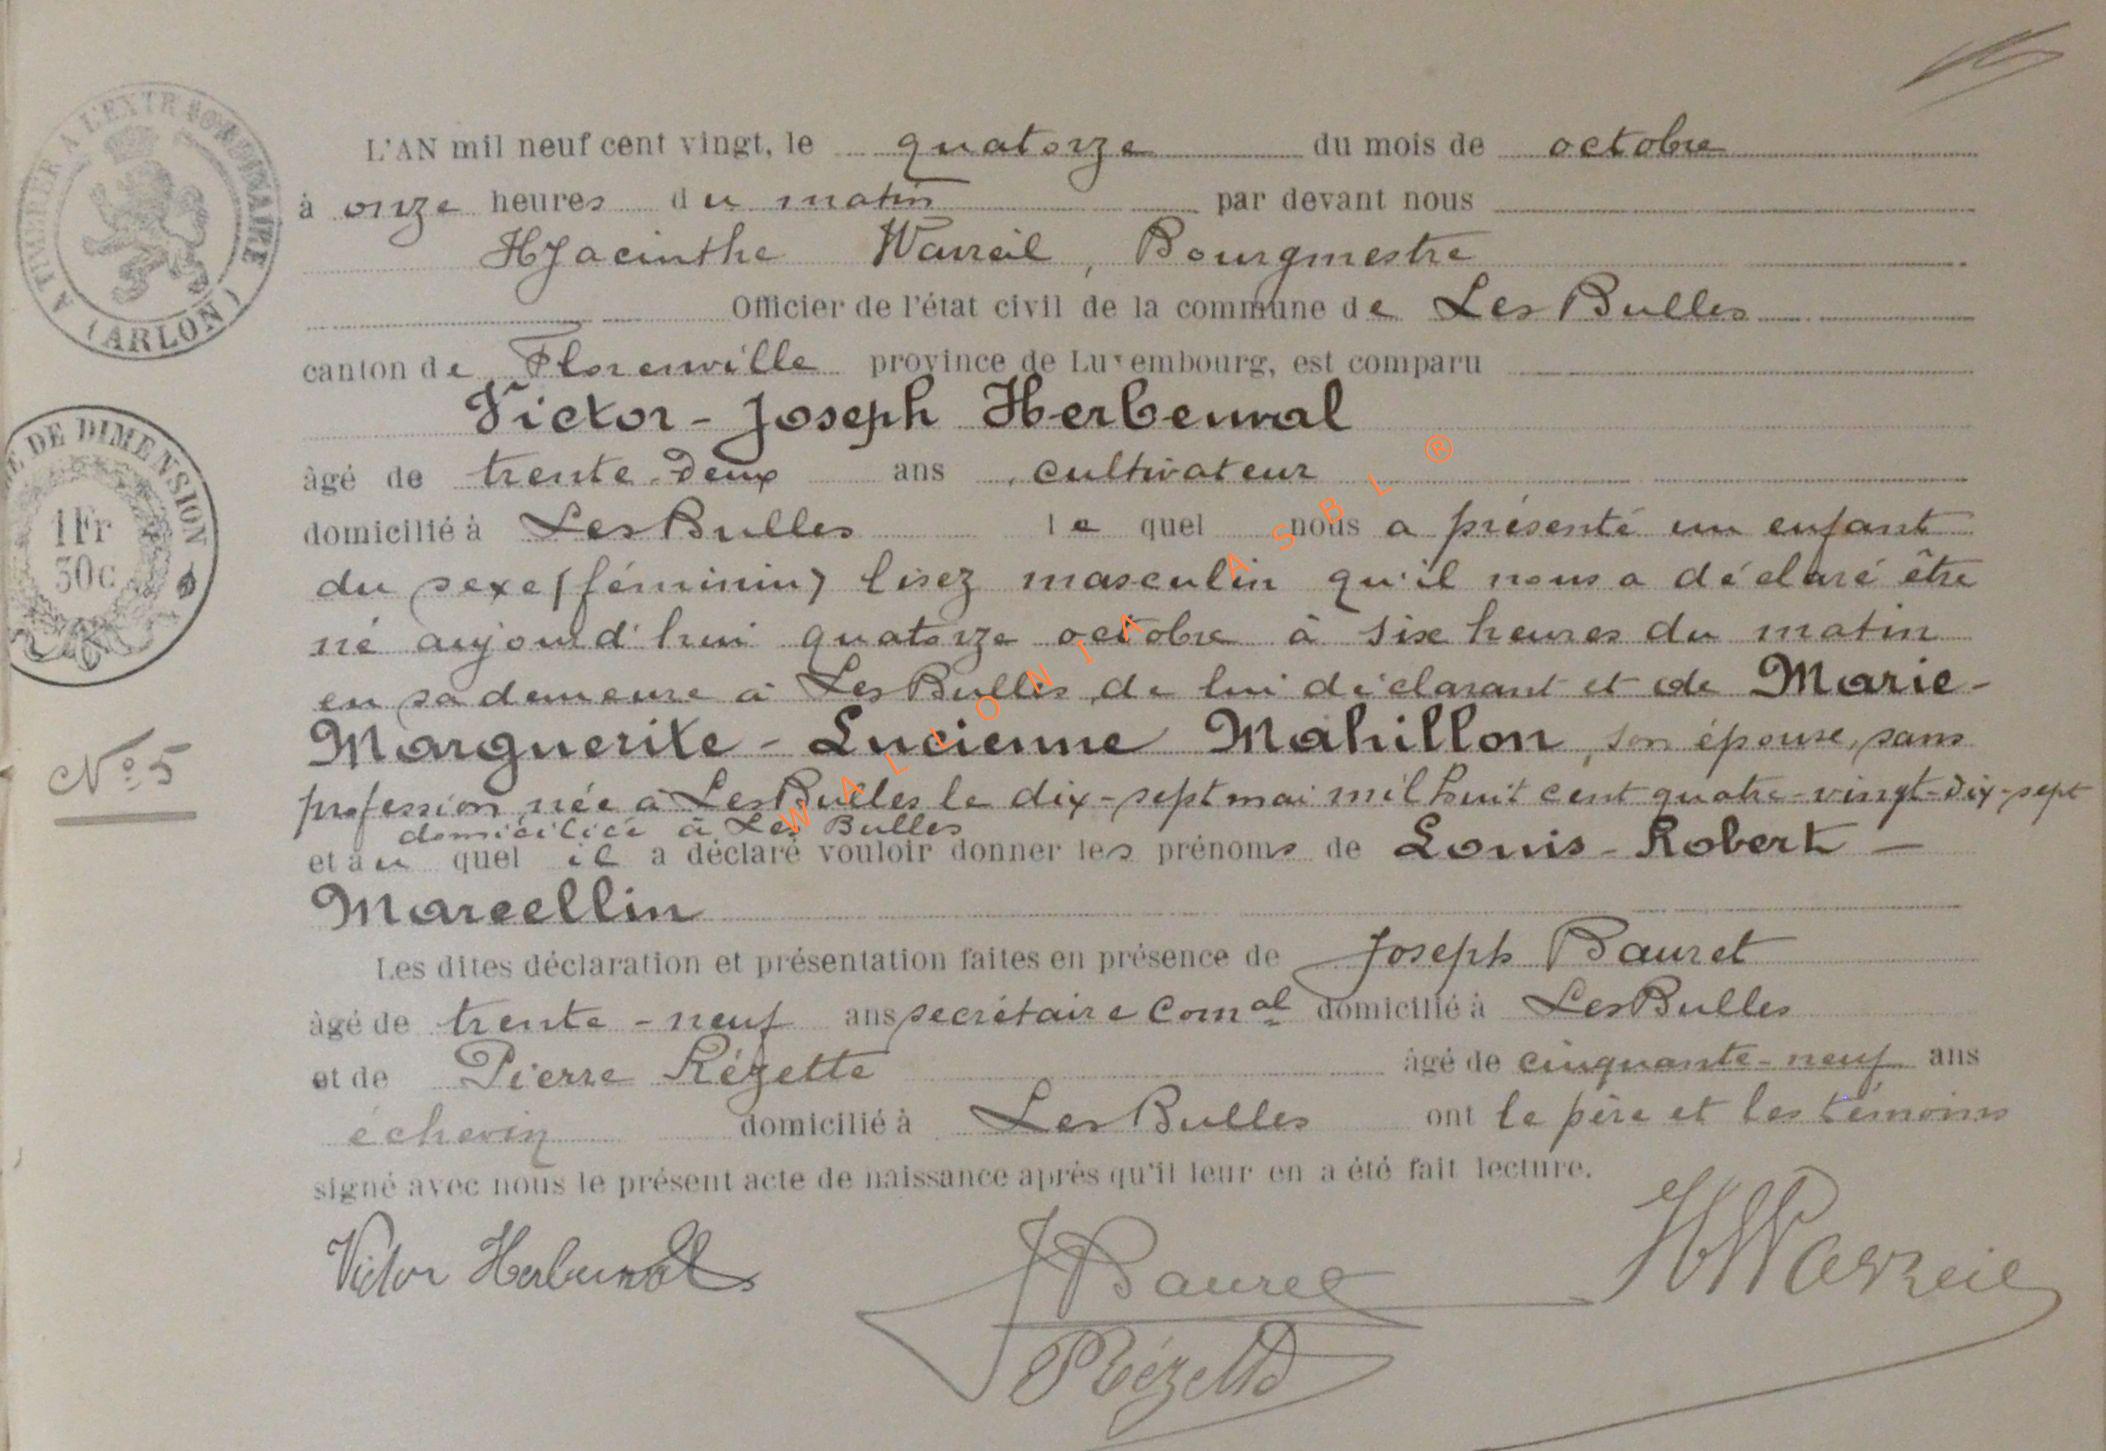 A TIMBRER A L'EXTRAORDINAIRE
(ARLON)
L'AN mil neuf cent vingt, le quatorze du mois de octobre
à onze heures du matin par devant nous
Hyacinthe Warzeil, Bourgmestre
Officier de l'état civil de la commune de Les Bulles
canton de Florenville province de Luxembourg, est comparu
Victor-Joseph Herbeuval
DE DIMENSION
1 Fr
50c
âgé de trente-deux ans, cultivateur
domicilié à Les Bulles lequel nous a présenté un enfant
du sexe (féminin) lisez masculin qu'il nous a déclaré être
né aujourd'hui quatorze octobre à six heures du matin
en sa demeure à Les Bulles, de lui déclarant et de Marie-
Marguerite-Lucienne Mahillon, son épouse, sans
No 5
profession née à Les Bulles le dix-sept mai mil huit cent quatre-vingt-dix-sept
domiciliée à Les Bulles
et au quel il a déclaré vouloir donner les prénoms de Louis-Robert-
Marcellin
Les dites déclaration et présentation faites en présence de Joseph Bauret
âgé de trente-neuf ans secrétaire Comal domicilié à Les Bulles
et de Pierre Rézette âgé de cinquante-neuf ans
échevin domicilié à Les Bulles ont le père et les témoins
signé avec nous le présent acte de naissance après qu'il leur en a été fait lecture.
Victor Herbeuval
J Bauret
H Warzeil
P Rézette
WALLONIA ASBL ®